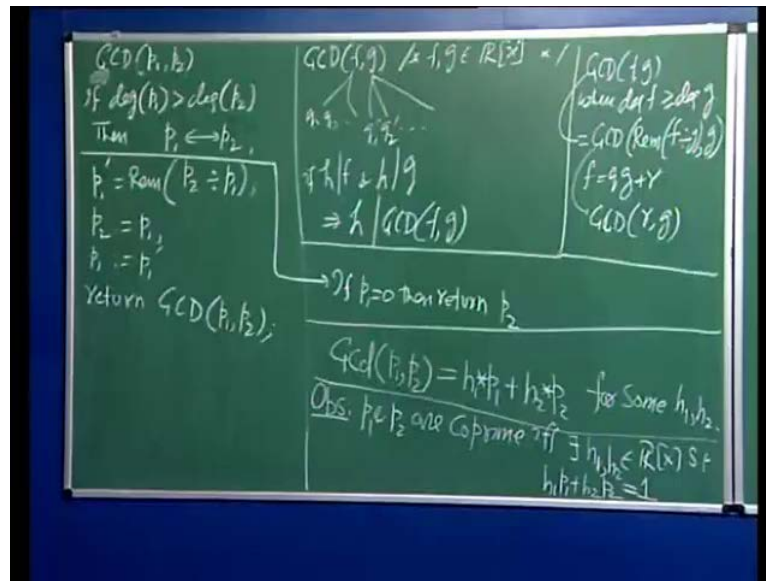 GCD(p₁,p₂)
if deg(p₁) > deg(p₂)
Then p₁ ↔ p₂,
p₁' = Rem(p₂ ÷ p₁),
p₂ = p₁,
p₁ = p₁'
return GCD(p₁,p₂);
GCD(f,g) /* f,g ∈ ℝ[x] */
if h|f & h|g
⇒ h | GCD(f,g)
GCD(f,g)
when deg f ≥ deg g
= GCD(Rem(f÷g),g)
f = qg+r
GCD(r,g)
If p₁=0 then return p₂
Gcd(p₁,p₂) = h₁*p₁ + h₂*p₂ for some h₁,h₂.
Obs. p₁ & p₂ are coprime iff ∃ h₁,h₂ ∈ ℝ[x] st
h₁p₁+h₂p₂ = 1